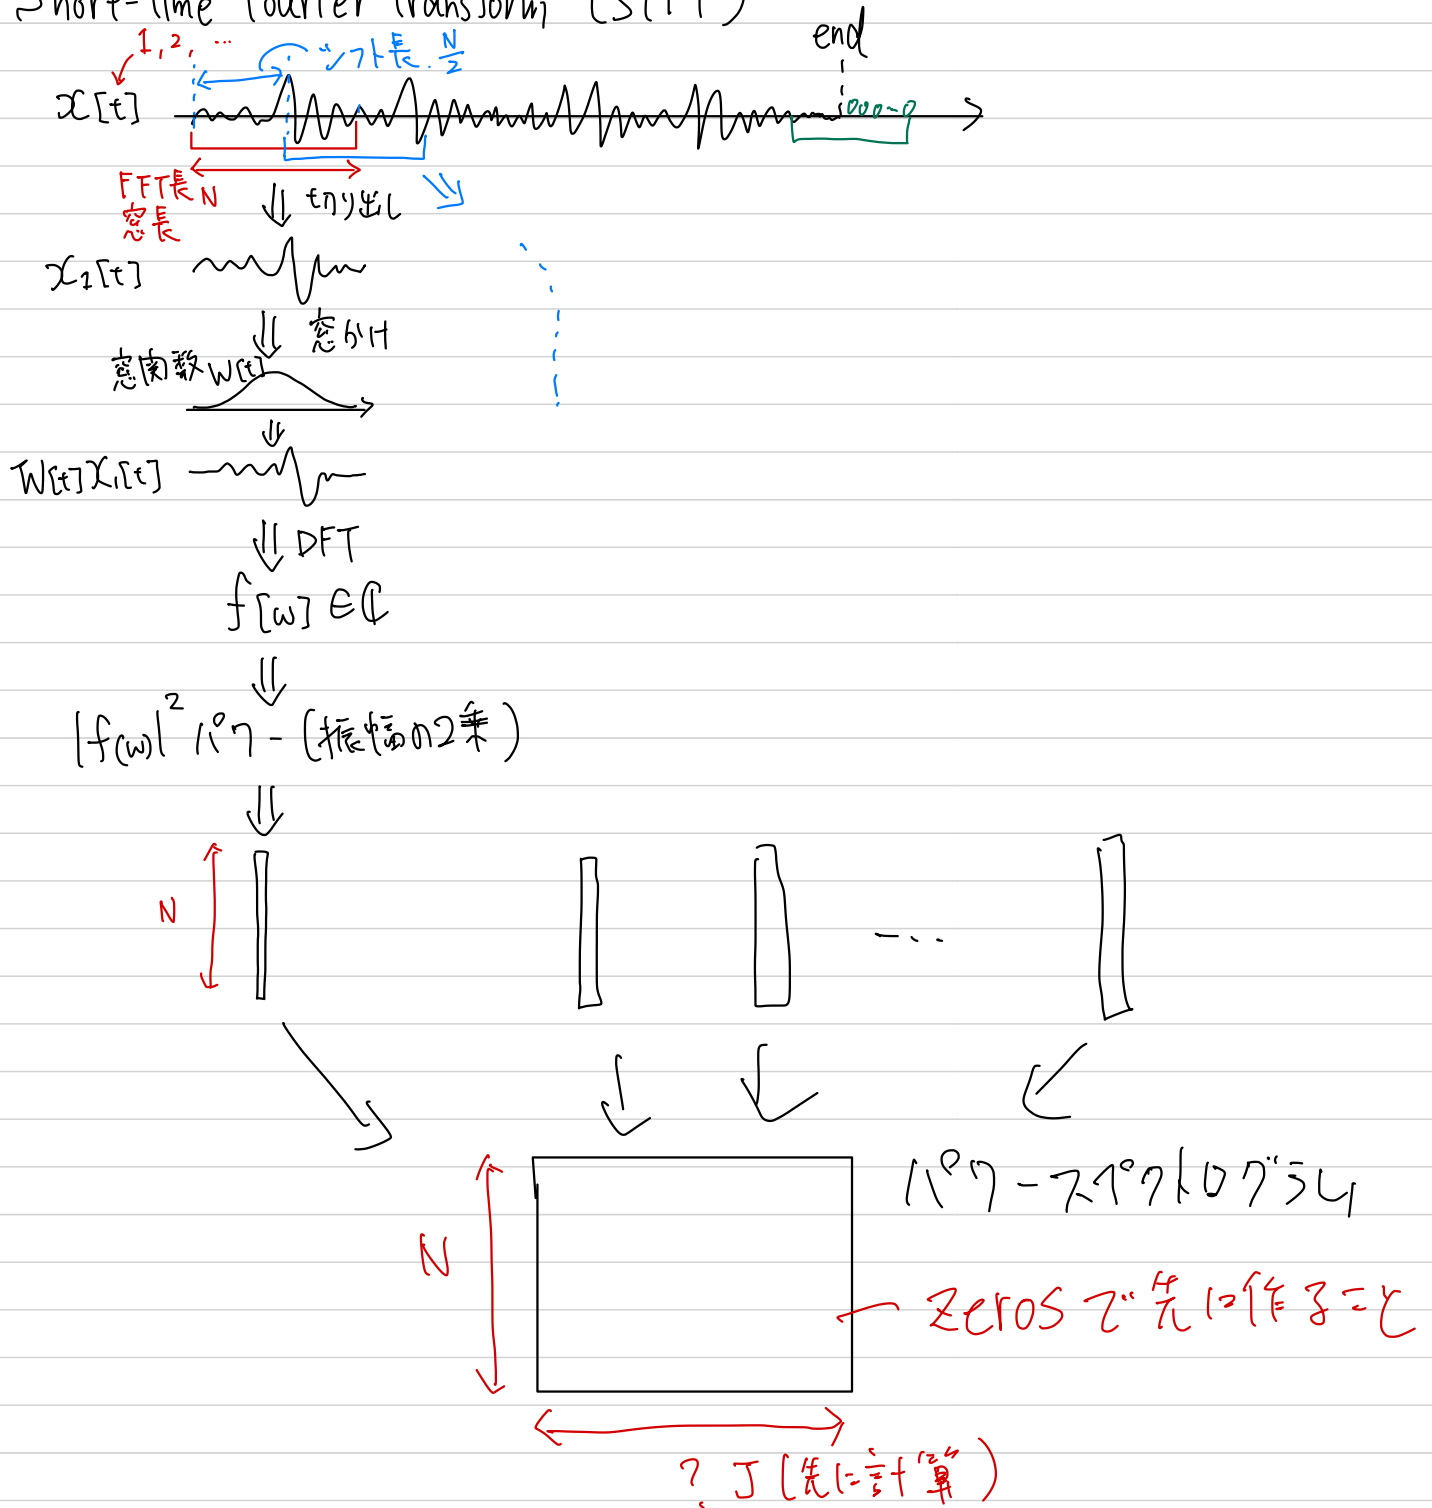 Short-Time Fourier Transform (STFT)
1, 2, …
シフト長 N/2
end
x[t]
000-0
FFT長 N
窓長
切り出し
x1[t]
窓かけ
窓関数 W[t]
W[t]x1[t]
DFT
f[ω] ∈ ℂ
|f(ω)|² パワー (振幅の2乗)
N
-...
パワースペクトログラム
N
zerosで先に作ること
? J (先に計算)